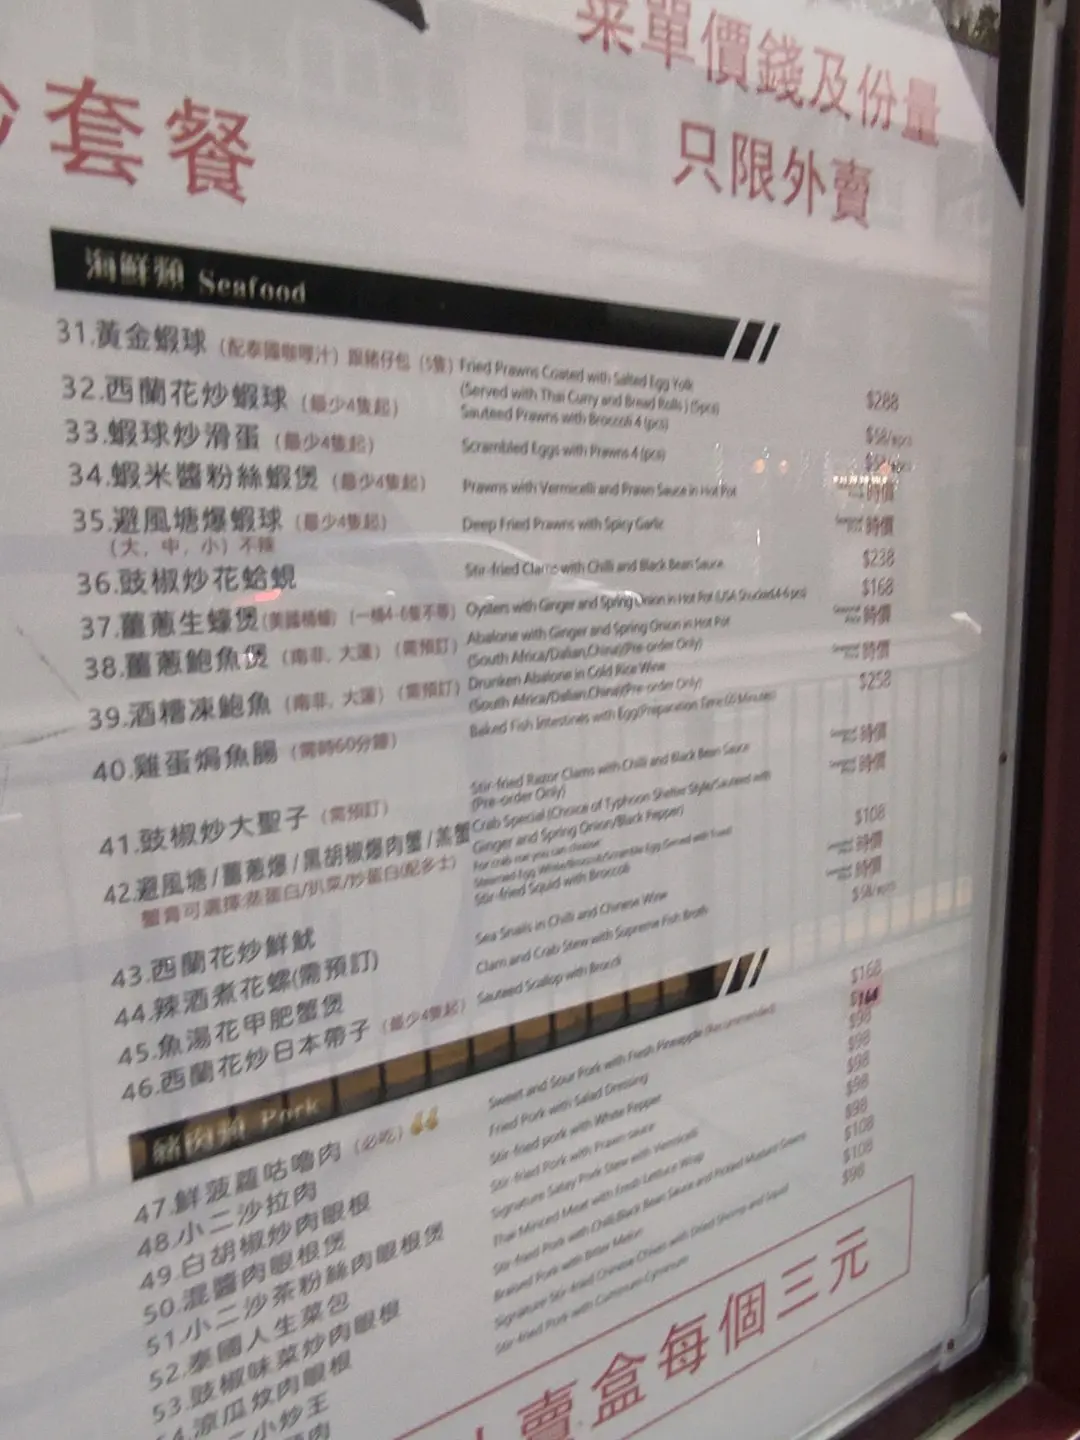 菜單價錢及份量
套餐
只限外賣
海鮮類 Seafood
31.黃金蝦球 (配泰國咖喱汁) 跟豬仔包 (5隻) Fried Prawns Coated with Salted Egg Yolk
(Served with Thai Curry and Bread Rolls) (5pcs) $288
32.西蘭花炒蝦球 (最少4隻起) Sauteed Prawns with Broccoli 4 (pcs) $58/
33.蝦球炒滑蛋 (最少4隻起) Scrambled Eggs with Prawns 4 (pcs)
34.蝦米醬粉絲蝦煲 (最少4隻起) Prawns with Vermicelli and Prawn Sauce in Hot Pot 時價
35.避風塘爆蝦球 (最少4隻起) Deep Fried Prawns with Spicy Garlic 時價
(大，中，小) 不辣
36.豉椒炒花蛤蜆 Stir-fried Clams with Chilli and Black Bean Sauce $238
37.薑蔥生蠔煲(美國桶蠔) (一桶4-6隻不等) Oysters with Ginger and Spring Onion in Hot Pot (USA Shucked,4-6 pcs) $168
38.薑蔥鮑魚煲 (南非, 大蓮) (需預訂) Abalone with Ginger and Spring Onion in Hot Pot 時價
(South Africa/Dalian,China)(Pre-order Only)
39.酒糟凍鮑魚 (南非, 大蓮) (需預訂) Drunken Abalone in Cold Rice Wine 時價
(South Africa/Dalian,China)(Pre-order Only)
40.雞蛋焗魚腸 (需時60分鐘) Baked Fish Intestines with Egg(Preparation Time:60 Minutes) $258
41.豉椒炒大聖子 (需預訂) Stir-fried Razor Clams with Chilli and Black Bean Sauce 時價
(Pre-order Only)
42.避風塘/薑蔥爆/黑胡椒爆肉蟹/羔蟹 Crab Special (Choice of Typhoon Shelter Style/Sauteed with 時價
Ginger and Spring Onion/Black Pepper)
蟹膏可選擇:蒸蛋白/扒菜/炒蛋白(配多士) For crab roe you can choose:
Steamed Egg White/Broccoli/Scramble Egg (Served with Toast)
43.西蘭花炒鮮魷 Stir-fried Squid with Broccoli $108
44.辣酒煮花螺(需預訂) Sea Snails in Chilli and Chinese Wine 時價
45.魚湯花甲肥蟹煲 Clam and Crab Stew with Supreme Fish Broth 時價
46.西蘭花炒日本帶子 (最少4隻起) Sauteed Scallop with Brocoli $58/
豬肉類 Pork
47.鮮菠蘿咕嚕肉 (必吃) Sweet and Sour Pork with Fresh Pineapple (Recommended) $168
48.小二沙拉肉 Fried Pork with Salad Dressing $168
49.白胡椒炒肉眼根 Stir-fried pork with White Pepper $98
50.混醬肉眼根煲 Stir-fried Pork with Prawn sauce $98
51.小二沙茶粉絲肉眼根煲 Signature Satay Pork Stew with Vermicelli $98
52.泰國人生菜包 Thai Minced Meat with Fresh Lettuce Wrap $98
53.豉椒味菜炒肉眼根 Stir-fried Pork with Chilli,Black Bean Sauce and Pickled Mustard Greens $98
54.涼瓜炆肉眼根 Braised Pork with Bitter Melon $108
小炒王 Signature Stir-fried Chinese Chives with Dried Shrimp and Squid $108
肉 Stir-fried Pork with $98
賣盒每個三元